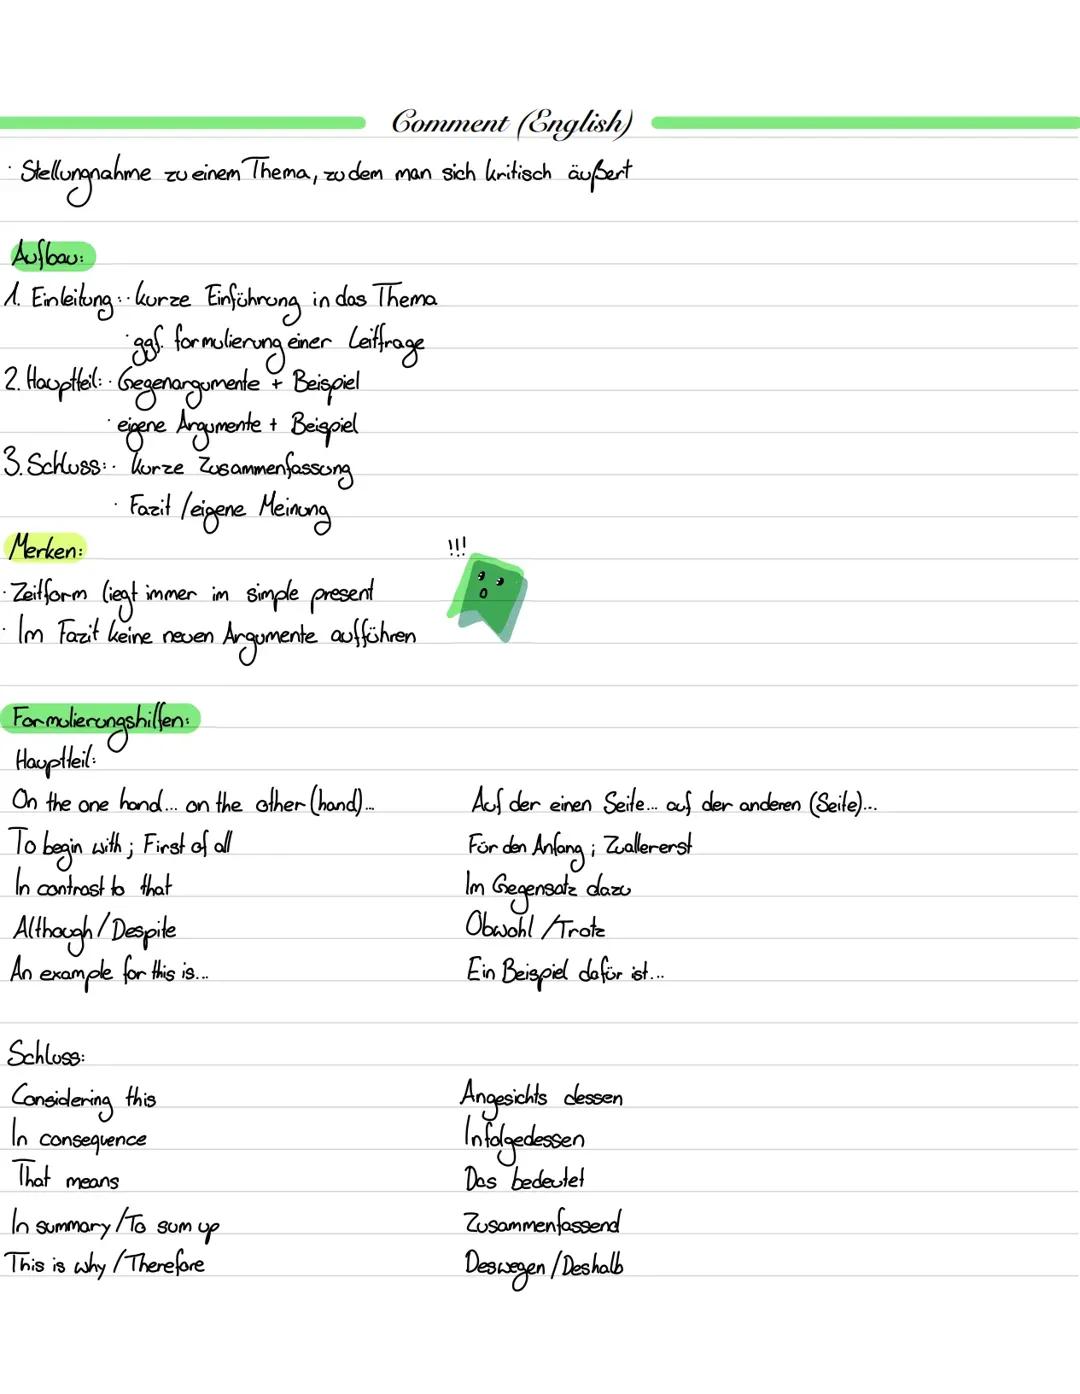 Comment (English)
· Stellungnahme zu einem Thema, zu dem man sich kritisch äußert
Aufbau:
1. Einleitung: · kurze Einführung in das Thema
· ggf. formulierung einer Leitfrage
2. Hauptteil: · Gegenargumente + Beispiel
· eigene Argumente + Beispiel
3. Schluss: · kurze Zusammenfassung
· Fazit / eigene Meinung
Merken:
!!!
· Zeitform liegt immer im simple present
· Im Fazit keine neuen Argumente aufführen
Formulierungshilfen:
Hauptteil:
On the one hand... on the other (hand)... Auf der einen Seite... auf der anderen (Seite)...
To begin with ; First of all Für den Anfang ; Zuallererst
In contrast to that Im Gegensatz dazu
Although / Despite Obwohl / Trotz
An example for this is... Ein Beispiel dafür ist...
Schluss:
Considering this Angesichts dessen
In consequence Infolgedessen
That means Das bedeutet
In summary / To sum up Zusammenfassend
This is why / Therefore Deswegen / Deshalb